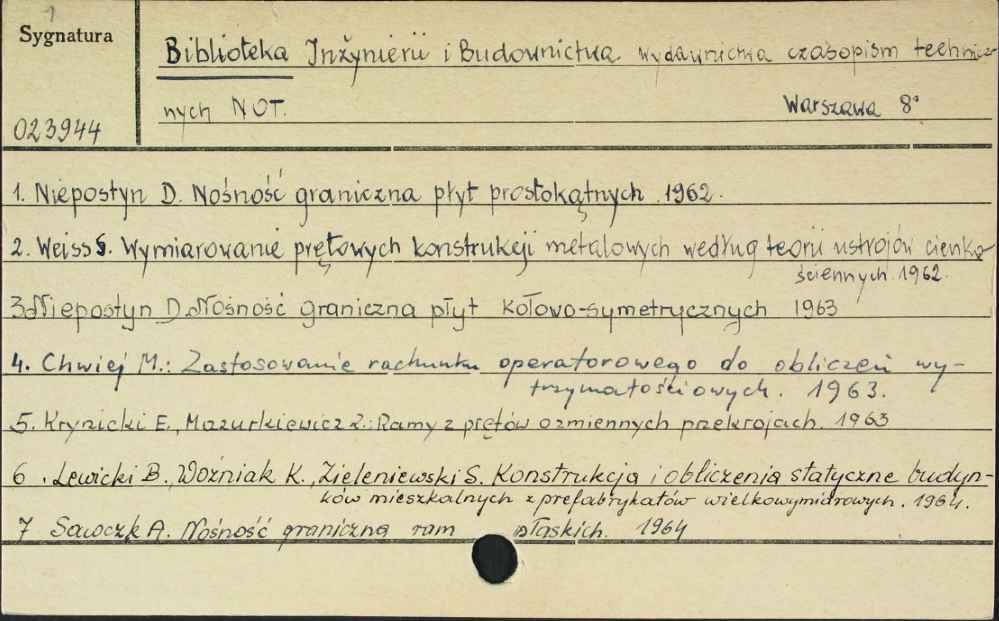 1
Sygnatura
Biblioteka Inżynierii i Budownictwa Wydawnictwa czasopism technicz-
nych NOT. Warszawa 8°
023944
1. Niepostyn D. Nośność graniczna płyt prostokątnych. 1962.
2. Weiss S. Wymiarowanie prętowych konstrukcji metalowych według teorii ustrojów cienko
ściennych. 1962.
3. Niepostyn D. Nośność graniczna płyt kołowo-symetrycznych 1963
4. Chwiej M.: Zastosowanie rachunku operatorowego do obliczeń wy-
trzymałościowych. 1963.
5. Krynicki E., Mazurkiewicz Z.: Ramy z prętów o zmiennych przekrojach. 1963
6. Lewicki B., Woźniak K., Zieleniewski S. Konstrukcja i obliczenia statyczne budyn-
ków mieszkalnych z prefabrykatów wielkowymiarowych. 1964.
7 Sawczk A. Nośność graniczna ram płaskich. 1964